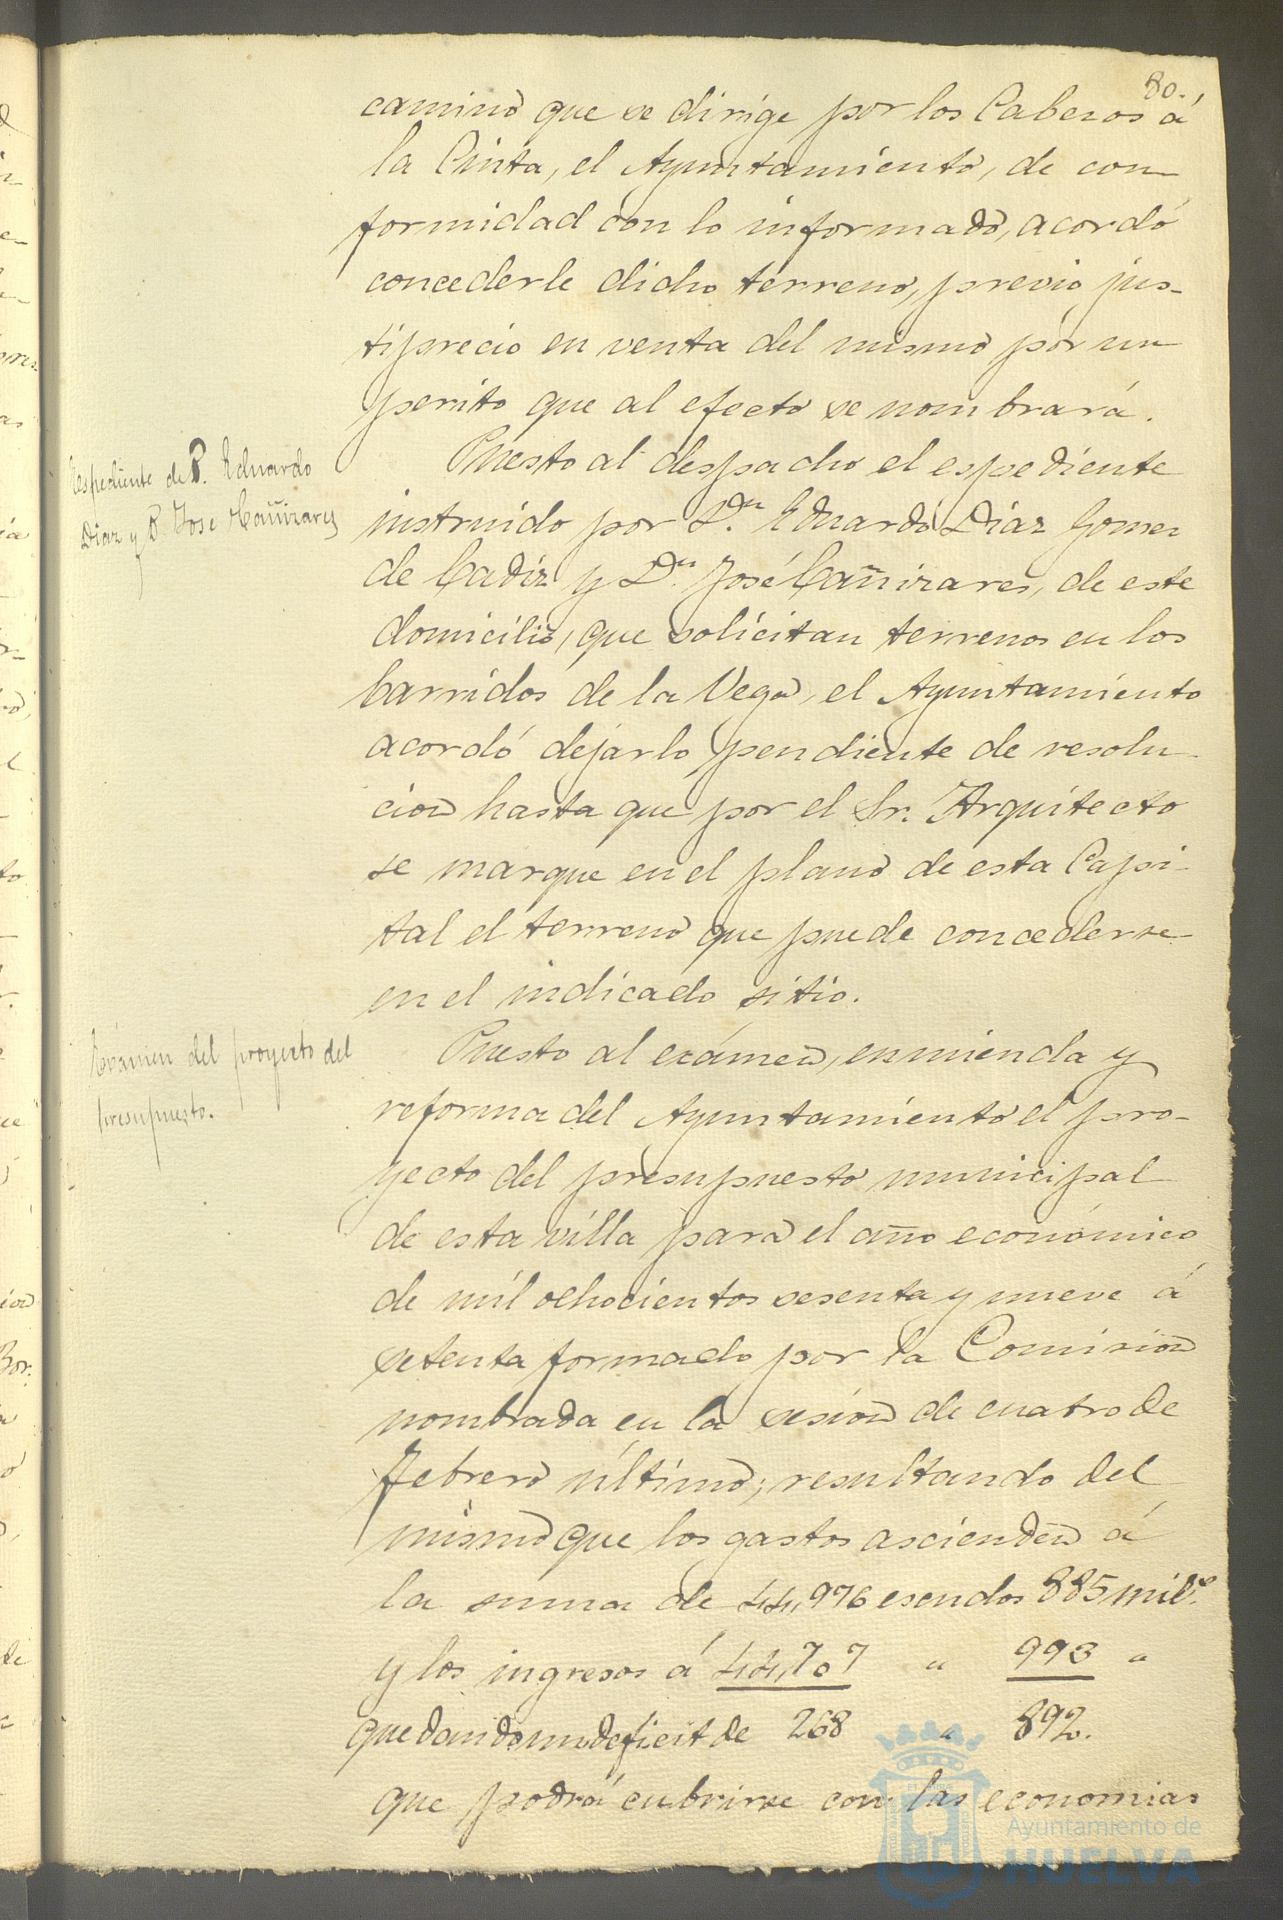 80.
camino que se dirige por los Cabezos á
la Cinta, el Ayuntamiento, de con-
formidad con lo informado, acordó
concederle dicho terreno, previo jus-
tiprecio en venta del mismo por un
perito que al efecto se nombrará.
Espediente de D. Eduardo
Diaz y D. Jose Cañizares
Puesto al despacho el espediente
instruido por D.n Eduardo Diaz Gomez
de Cadiz y D.n José Cañizares, de este
domicilio, que solicitan terrenos en los
barridos de la Vega, el Ayuntamiento
acordó dejarlo pendiente de resolu-
cion hasta que por el Sr. Arquitecto
se marque en el plano de esta Capi-
tal el terreno que puede concederse
en el indicado sitio.
Exámen del proyecto del
presupuesto.
Puesto al exámen, enmienda y
reforma del Ayuntamiento el pro-
yecto del presupuesto municipal
de esta villa para el año económico
de mil ochocientos sesenta y nueve á
setenta formado por la Comision
nombrada en la sesion de cuatro de
Febrero último; resultando del
mismo que los gastos ascienden á
la suma de 44,976 escudos 885 mil.s
y los ingresos á 44,707 " 993 "
quedando un deficit de 268 " 892.
que podrá cubrirse con las economias
Ayuntamiento de
HUELVA